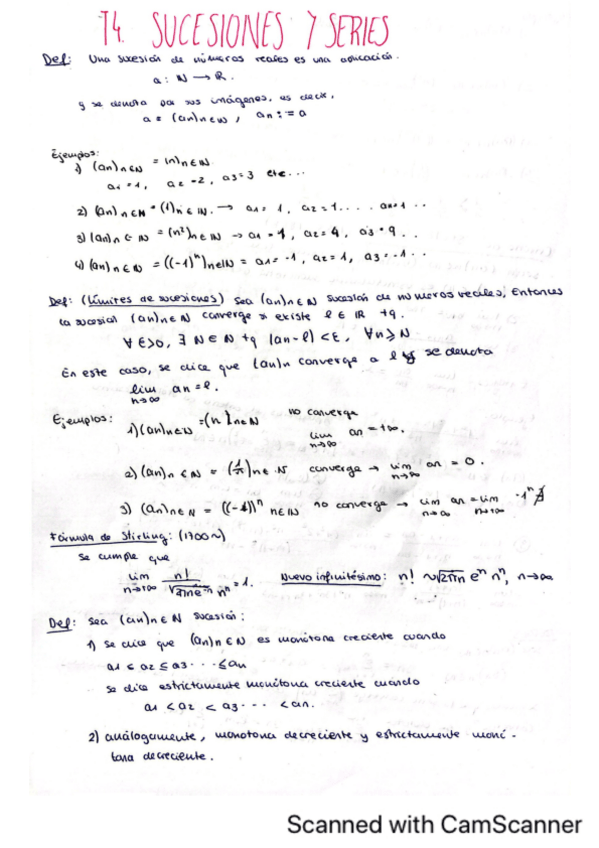 T4. SUCESIONES Y SERIES
Def: Una sucesión de números reales es una aplicación.
a: N → R.
y se denota por sus imágenes, es decir,
a = (an)n∈N, an := a
Ejemplos:
1) (an)n∈N = (n)n∈N
a1 = 1, a2 = 2, a3 = 3 etc...
2) (an)n∈N = (1)n∈N. → a1 = 1, a2 = 1.... an=1 ..
3) (an)n∈N = (n²)n∈N → a1 = 1, a2 = 4, a3 = 9 ..
4) (an)n∈N = ((-1)ⁿ)n∈N = a1 = -1, a2 = 1, a3 = -1 ..
Def: (Límites de sucesiones) Sea (an)n∈N sucesión de números reales, entonces
la sucesión (an)n∈N converge si existe l ∈ R tq.
∀ε>0, ∃ N∈N tq |an-l| < ε, ∀n≥N
En este caso, se dice que (an)n converge a l y se denota
lim n→∞ an = l.
Ejemplos: 1) (an)n∈N = (n)n∈N no converge lim n→∞ an = +∞.
2) (an)n∈N = (1/n)n∈N converge → lim n→∞ an = 0.
3) (an)n∈N = ((-1))ⁿ n∈N no converge → lim n→∞ an = lim n→∞ -1ⁿ ∄
Fórmula de Stirling: (1700~)
Se cumple que
lim n→+∞ n! / √2πn e⁻ⁿ nⁿ = 1. Nuevo infinitésimo: n! ~ √2πn eⁿ nⁿ, n→∞
Def: Sea (an)n∈N sucesión:
1) se dice que (an)n∈N es monótona creciente cuando
a1 ≤ a2 ≤ a3 ... ≤ an
se dice estrictamente monótona creciente cuando
a1 < a2 < a3 ... < an.
2) análogamente, monotona decreciente y estrictamente monó-
tona decreciente.
Scanned with CamScanner